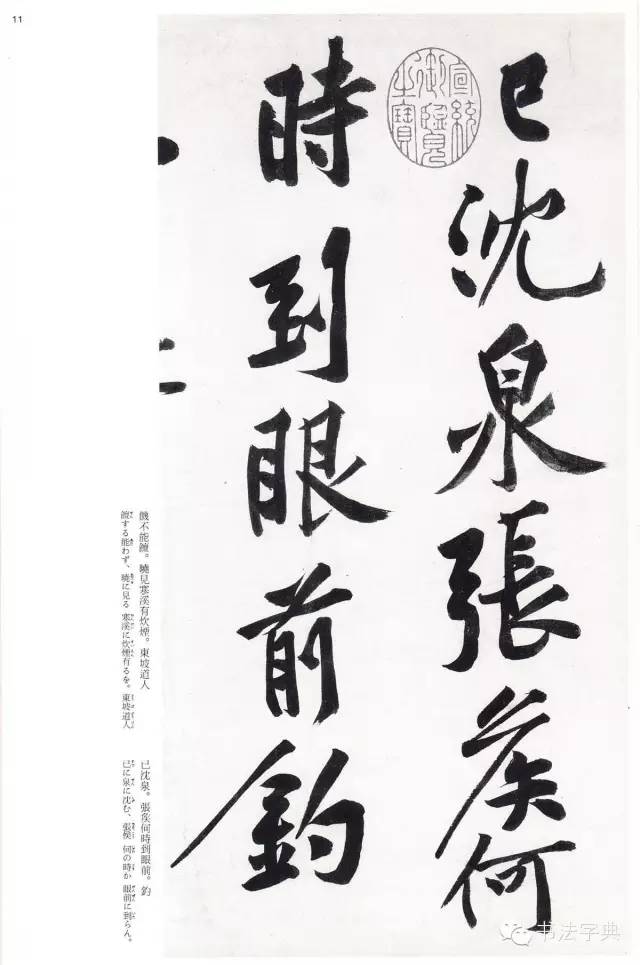 11
已沈泉張矦何
宣統
御覽
之寶
時到眼前釣
饑不能饘。曉見寒溪有炊煙。東坡道人
饘する能わず、曉に見る 寒溪に炊煙有るを。東坡道人
已沈泉。張矦何時到眼前。釣
已に泉に沈む、張矦 何の時か 眼前に到らん。
书法字典